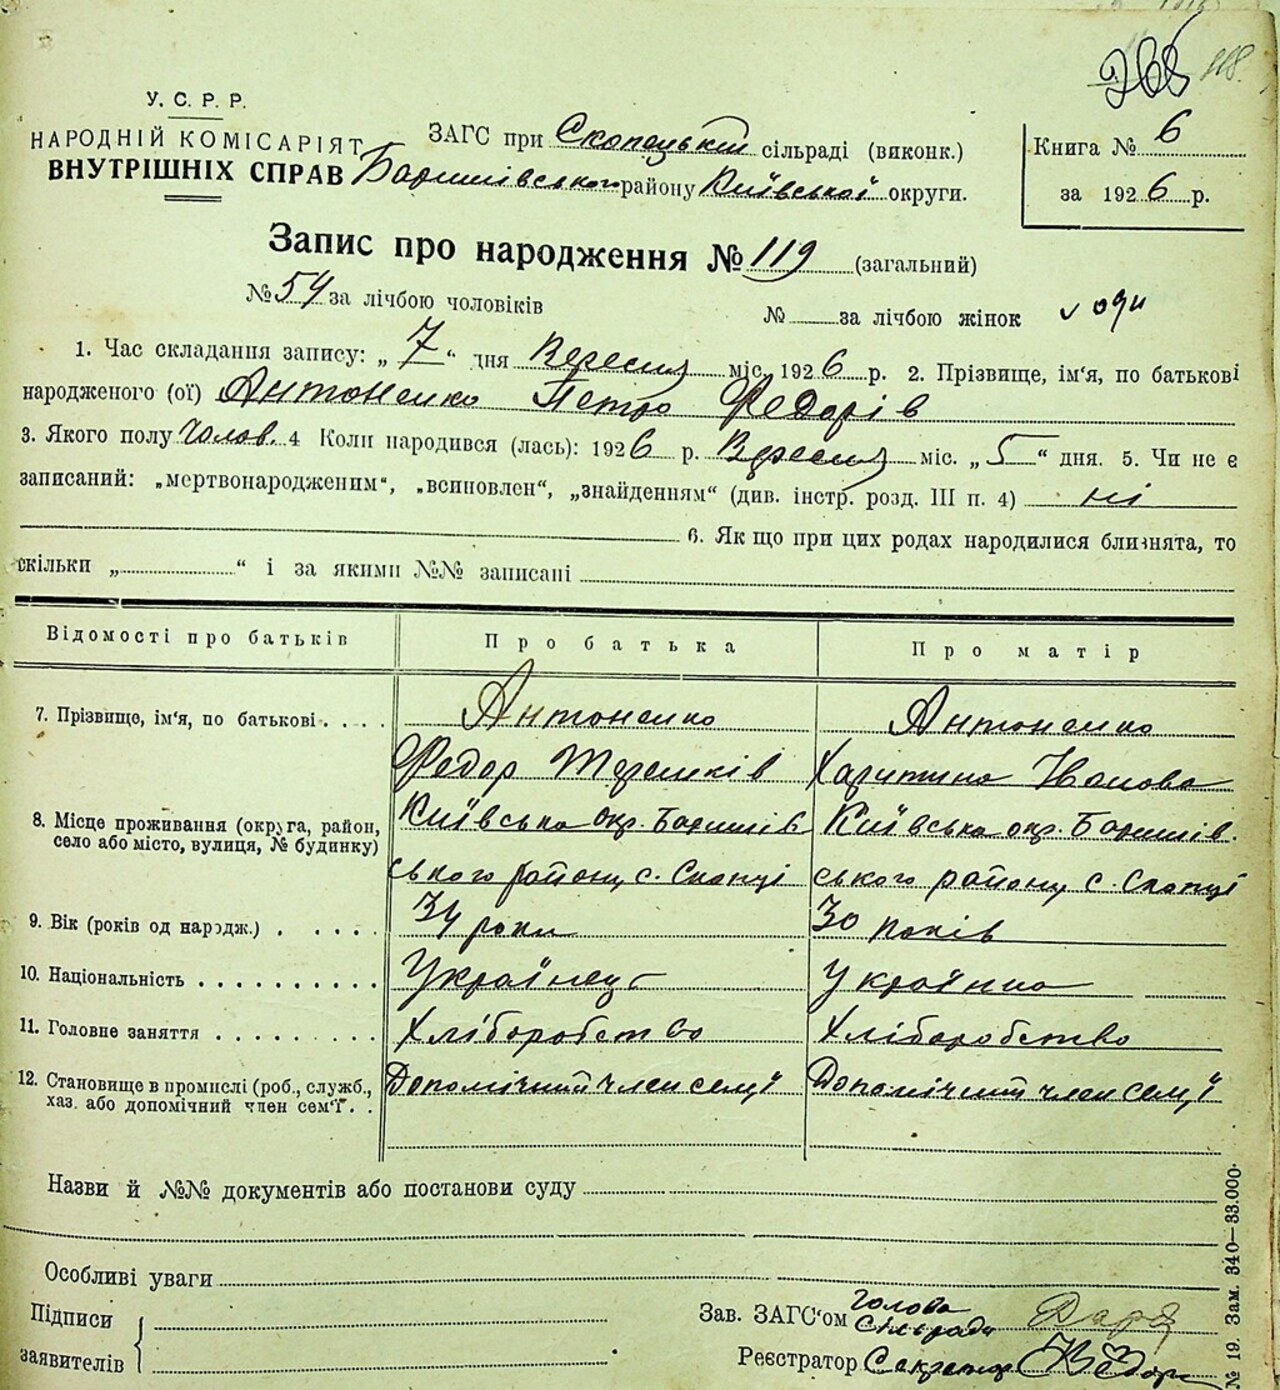 268 118.
У. С. Р. Р.
НАРОДНІЙ КОМІСАРІЯТ
ВНУТРІШНІХ СПРАВ
ЗАГС при Скопецький сільраді (виконк.)
Баришівського району Київської округи.
Книга № 6
за 1926 р.
Запис про народження № 119 (загальний)
№ 54 за лічбою чоловіків № за лічбою жінок
1. Час складання запису: „ 7 “ дня Вересня міс. 1926 р. 2. Прізвище, ім'я, по батькові
народженого (ої) Антоненко Петро Федорів
3. Якого полу Чолов. 4 Коли народився (лась): 1926 р. Вересня міс. „ 5 “ дня. 5. Чи не є
записаний: „мертвонародженим“, „всиновлен“, „знайденням“ (див. інстр. розд. III п. 4) ні
6. Як що при цих родах народилися близнята, то
скільки „ “ і за якими №№ записані
Відомості про батьків Про батька Про матір
7. Прізвище, ім'я, по батькові . . . . Антоненко Антоненко
Федор Терешків Харитина
8. Місце проживання (округа, район, Київська окр. Баришів Київська окр. Баришів.
село або місто, вулиця, № будинку)
ського району с. Скопці ського району с. Скопці
9. Вік (років од народж.) . . . . . 34 роки 30 років
10. Національність . . . . . . . . . . Українець Українка
11. Головне заняття . . . . . . . . . Хліборобство Хліборобство
12. Становище в промислі (роб., служб., Допомічний член семʼї Допомічний член семʼї
хаз. або допомічний член сем'ї . .
Назви й №№ документів або постанови суду
Особливі уваги
Підписи
заявителів
Зав. ЗАГС'ом Голова
Сільради
Реєстратор Секретар
№ 19. Зам. 340—33.000.